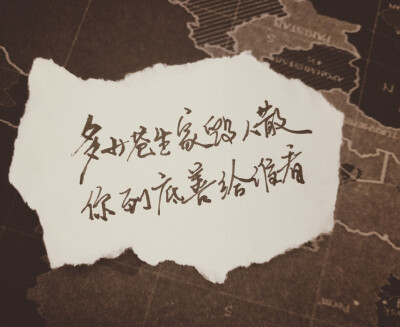 多少苍生家毁人散
你到底善给谁看
PAKISTAN
AFGHANISTAN